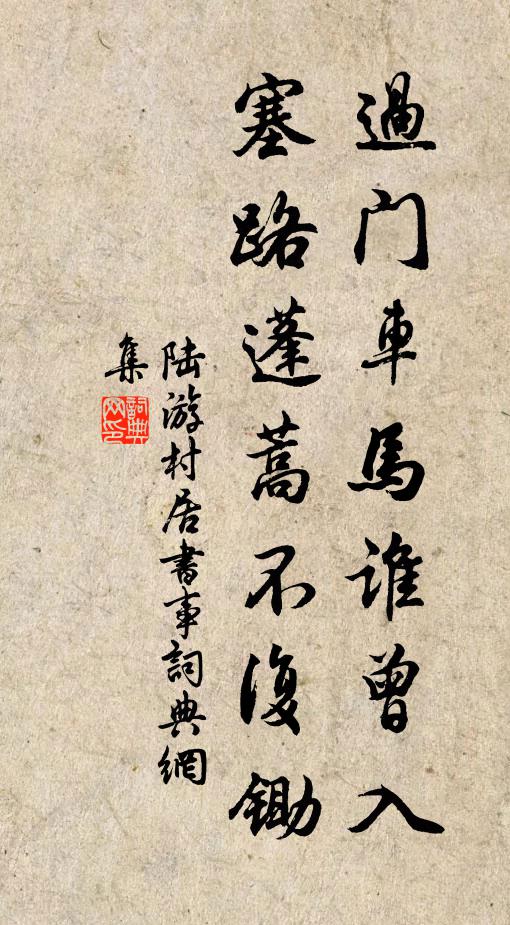 過門車馬誰曾入
塞路蓬蒿不復鋤
陸游村居書事詞典網
集
詞典
网印